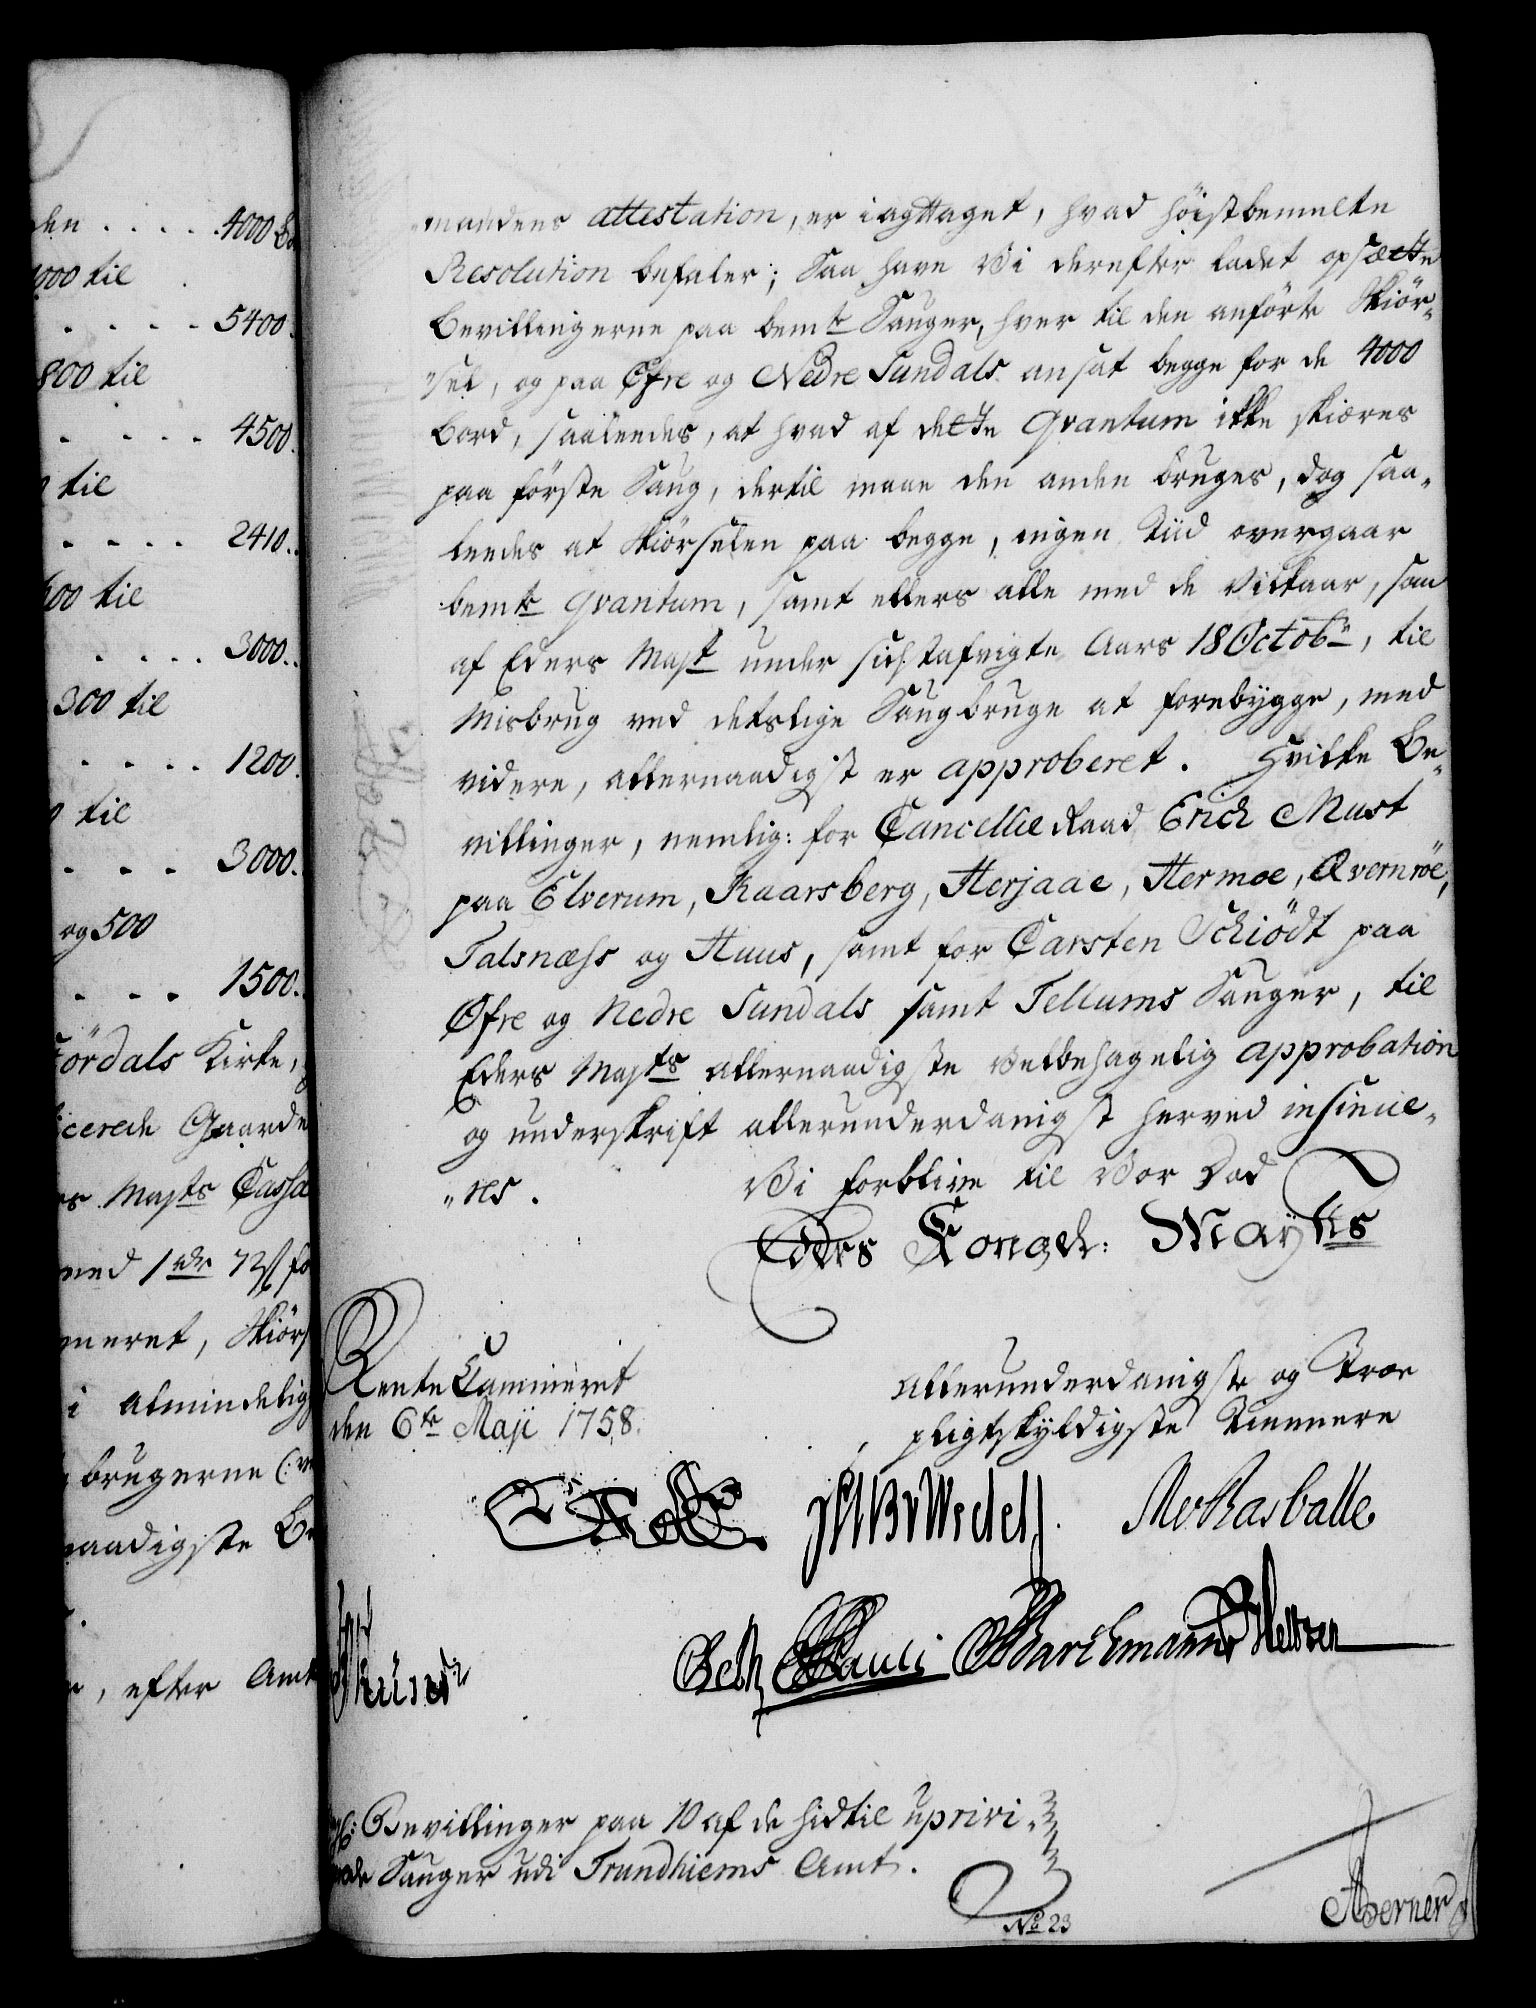 den . . . . . 4000 Bo
000 til
. . . . 5400.
800 til
. . . . 4500.
til
. . . . 2410.
00 til
. . . . 3000.
300 til
. . . . 1200.
til
. . . 3000.
og 500
. . . 1500.
ördals Kirke,
cerede Gaarde
Majts Cassa
med 1 rdr 72 ß fo
neret, Skiörs
i almindelig
brugerne (: ve
naadigste Be
, efter Amt
mandens attestation, er iagttaget, hvad höistbemelte
Resolution befaler; Saa have Vi derefter ladet opsætte
Bevillingerne paa bemte Sauger, hver til den anförte Skiör-
sel, og paa Øfre og Nedre Sundals ansat begge for de 4000
Bord, saaleedes, at hvad af dette Qvantum ikke skiæres
paa förste Saug, dertil maae den anden bruges, dog saa-
leedes at Skiörselen paa begge, ingen Tiid overgaar
bemte qvantum, samt ellers alle med de Vilkaar, som
af Eders Majt under sidstafvigte Aars 18 Octobr, til
Misbrug ved deslige Saugbruge at forebygge, med
videre, allernaadigst er approberet. Hvilke Be-
villinger, nemlig: for Cancellie Raad Erich Must
paa Elverum, Kaarsberg, Herjaae, Hermoe, Qvernröe,
Talsnæhs og Huus, samt for Carsten Schiödt paa
Øfre og Nedre Sundals samt Tellums Sauger, til
Eders Majts allernaadigste Velbehagelig approbation
og underskrift allerunderdanigst herved insinue-
res. Vi forblive til Vor Död
Eders Kongel: Mayts
Rente Cammeret
den 6te Maji 1758.
allerunderdanigste og Troe
pligtskyldigste Tiennere
Wedel
Rasballe
Selk Pauli Barchmann
Bevillinger paa 10 af de hidtil uprivi-
Sauger udi Trundhiems Amt.
No 23
Berner